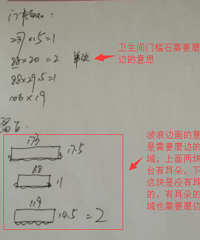 门槛石:
237×15=1
88×20=2 单位
88×29.5=1
106×19
卫生间门槛石需要磨
边的意思
窗台:
173
17.5
88
11
119
14.5=2
波浪边画的意
是需要磨边的
域,上面两块
台有耳朵,下
这块是没有耳
的,有耳朵的
域也需要磨边